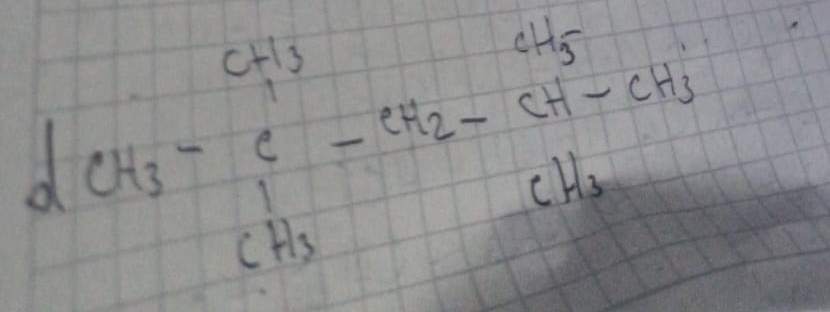 CH3 CH3
d CH3 - C - CH2 - CH - CH3
CH3 CH3